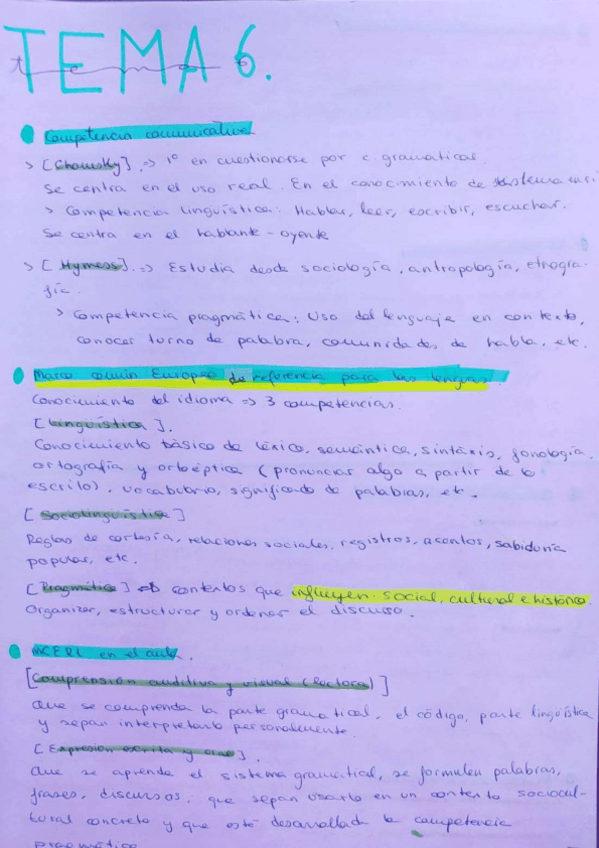 TEMA 6.
tema 6
Competencia comunicativa
> [Chomsky] => 1º en cuestionarse por c. gramatical.
Se centra en el uso real. En el conocimiento de
> Competencia lingüística: Hablar, leer, escribir, escuchar.
Se centra en el hablante - oyente
> [Hymess] => Estudia desde sociología, antropología, etnogra-
fía.
> Competencia pragmática: Uso del lenguaje en contexto,
conocer turno de palabra, comunidades de habla, etc.
Marco común Europeo de referencia para las lenguas.
Conocimiento del idioma => 3 competencias.
[Lingüística].
Conocimiento básico de léxico, semántica, sintáxis, fonología,
ortografía y ortoéptica (pronunciar algo a partir de lo
escrito), vocabulario, significado de palabras, etc.
[Sociolingüística]
Reglas de cortesía, relaciones sociales, registros, acentos, sabiduría
popular, etc.
[Pragmática] => contextos que influyen: social, cultural e histórico.
Organizar, estructurar y ordenar el discurso.
MCERL en el aula.
[Comprensión auditiva y visual (lectora)]
Que se comprenda la parte gramatical, el código, parte lingüística
y sepan interpretarlo personalmente.
[Expresión escrita y oral].
Que se aprenda el sistema gramatical, se formulen palabras,
frases, discursos, que sepan usarlo en un contexto sociocul-
tural concreto y que esté desarrollada la competencia
pragmática